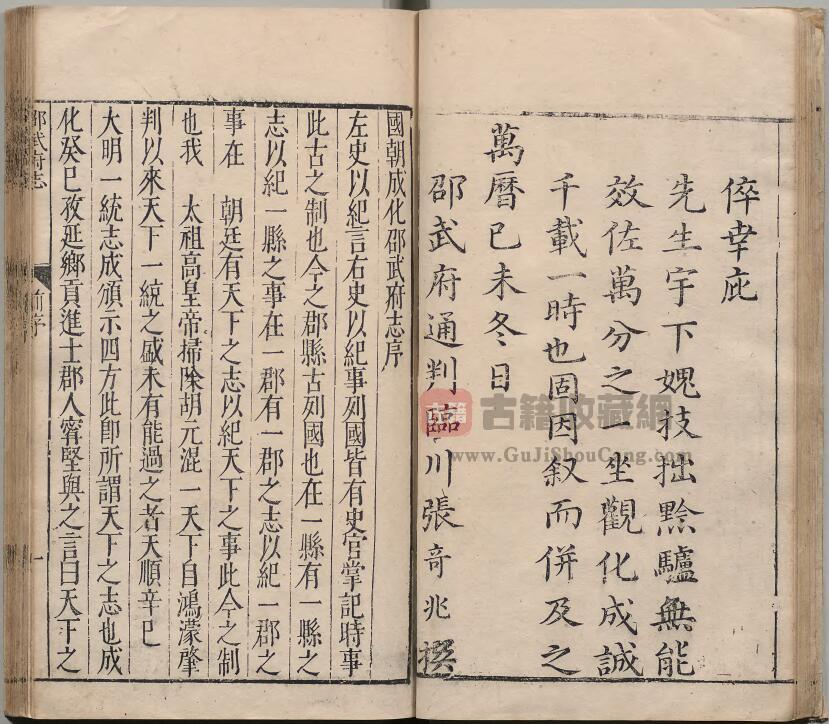 倅幸庇
先生宇下媿技拙黔驢無能
效佐萬分之一坐觀化成誠
千載一時也固因叙而併及之
萬曆己未冬日
邵武府通判臨川張竒兆撰
國朝成化邵武府志序
左史以紀言右史以紀事列國皆有史官掌記時事
此古之制也今之郡縣古列國也在一縣有一縣之
志以紀一縣之事在一郡有一郡之志以紀一郡之
事在 朝廷有天下之志以紀天下之事此今之制
也我 太祖高皇帝掃除胡元混一天下自鴻濛肇
判以來天下一統之盛未有能過之者天順辛巳
大明一統志成頒示四方此即所謂天下之志也成
化癸巳孜延鄉貢進士郡人甯堅與之言曰天下之
邵武府志
前序
一
古籍收藏網
www.GuJiShouCang.com